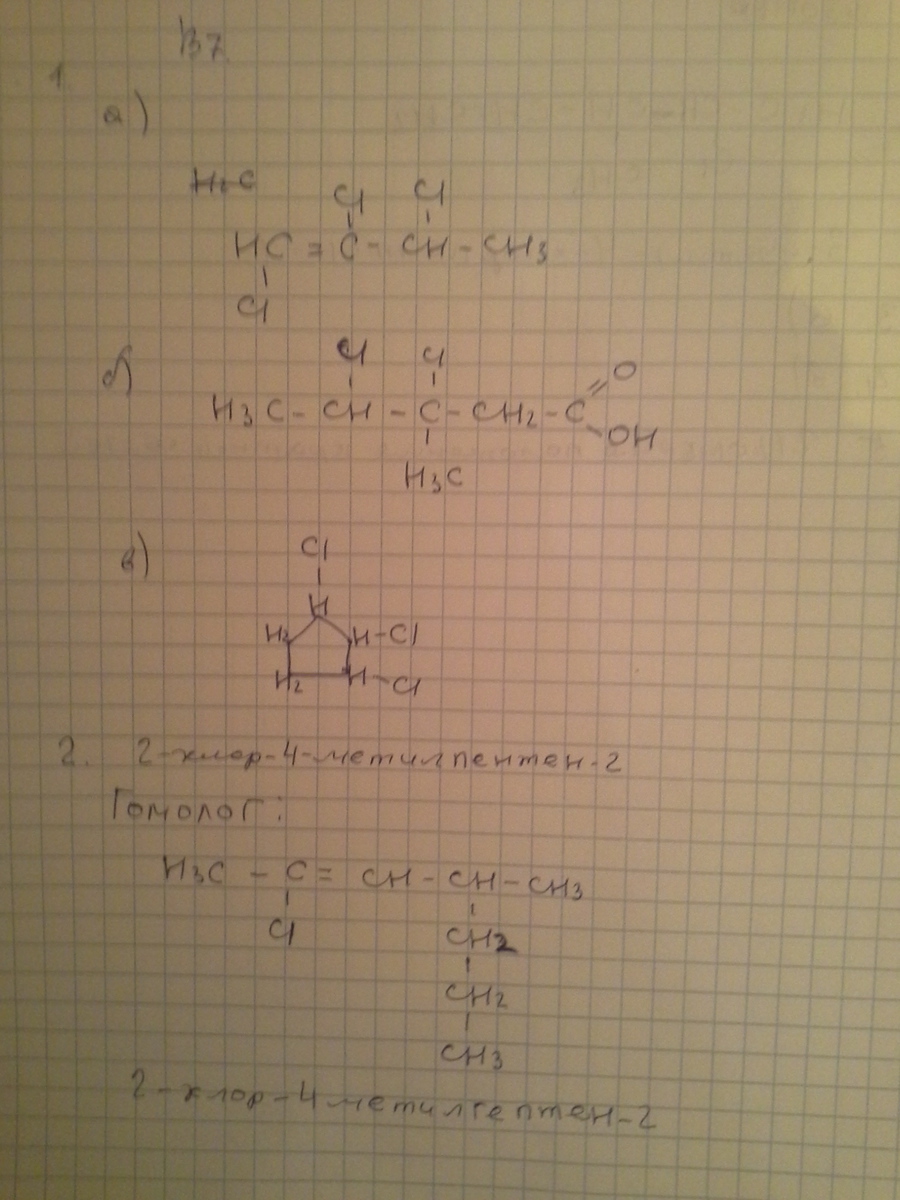 В7
1.
а)
H₃C
Cl Cl
HC = C - CH - CH₃
Cl
б)
Cl Cl O
H₃C - CH - C - CH₂ - C
OH
H₃C
в)
Cl
H
H₂ H-Cl
H₂ H-Cl
2. 2-хлор-4-метилпентен-2
Гомолог:
H₃C - C = CH - CH - CH₃
Cl CH₂
CH₂
CH₃
2-хлор-4метилгептен-2